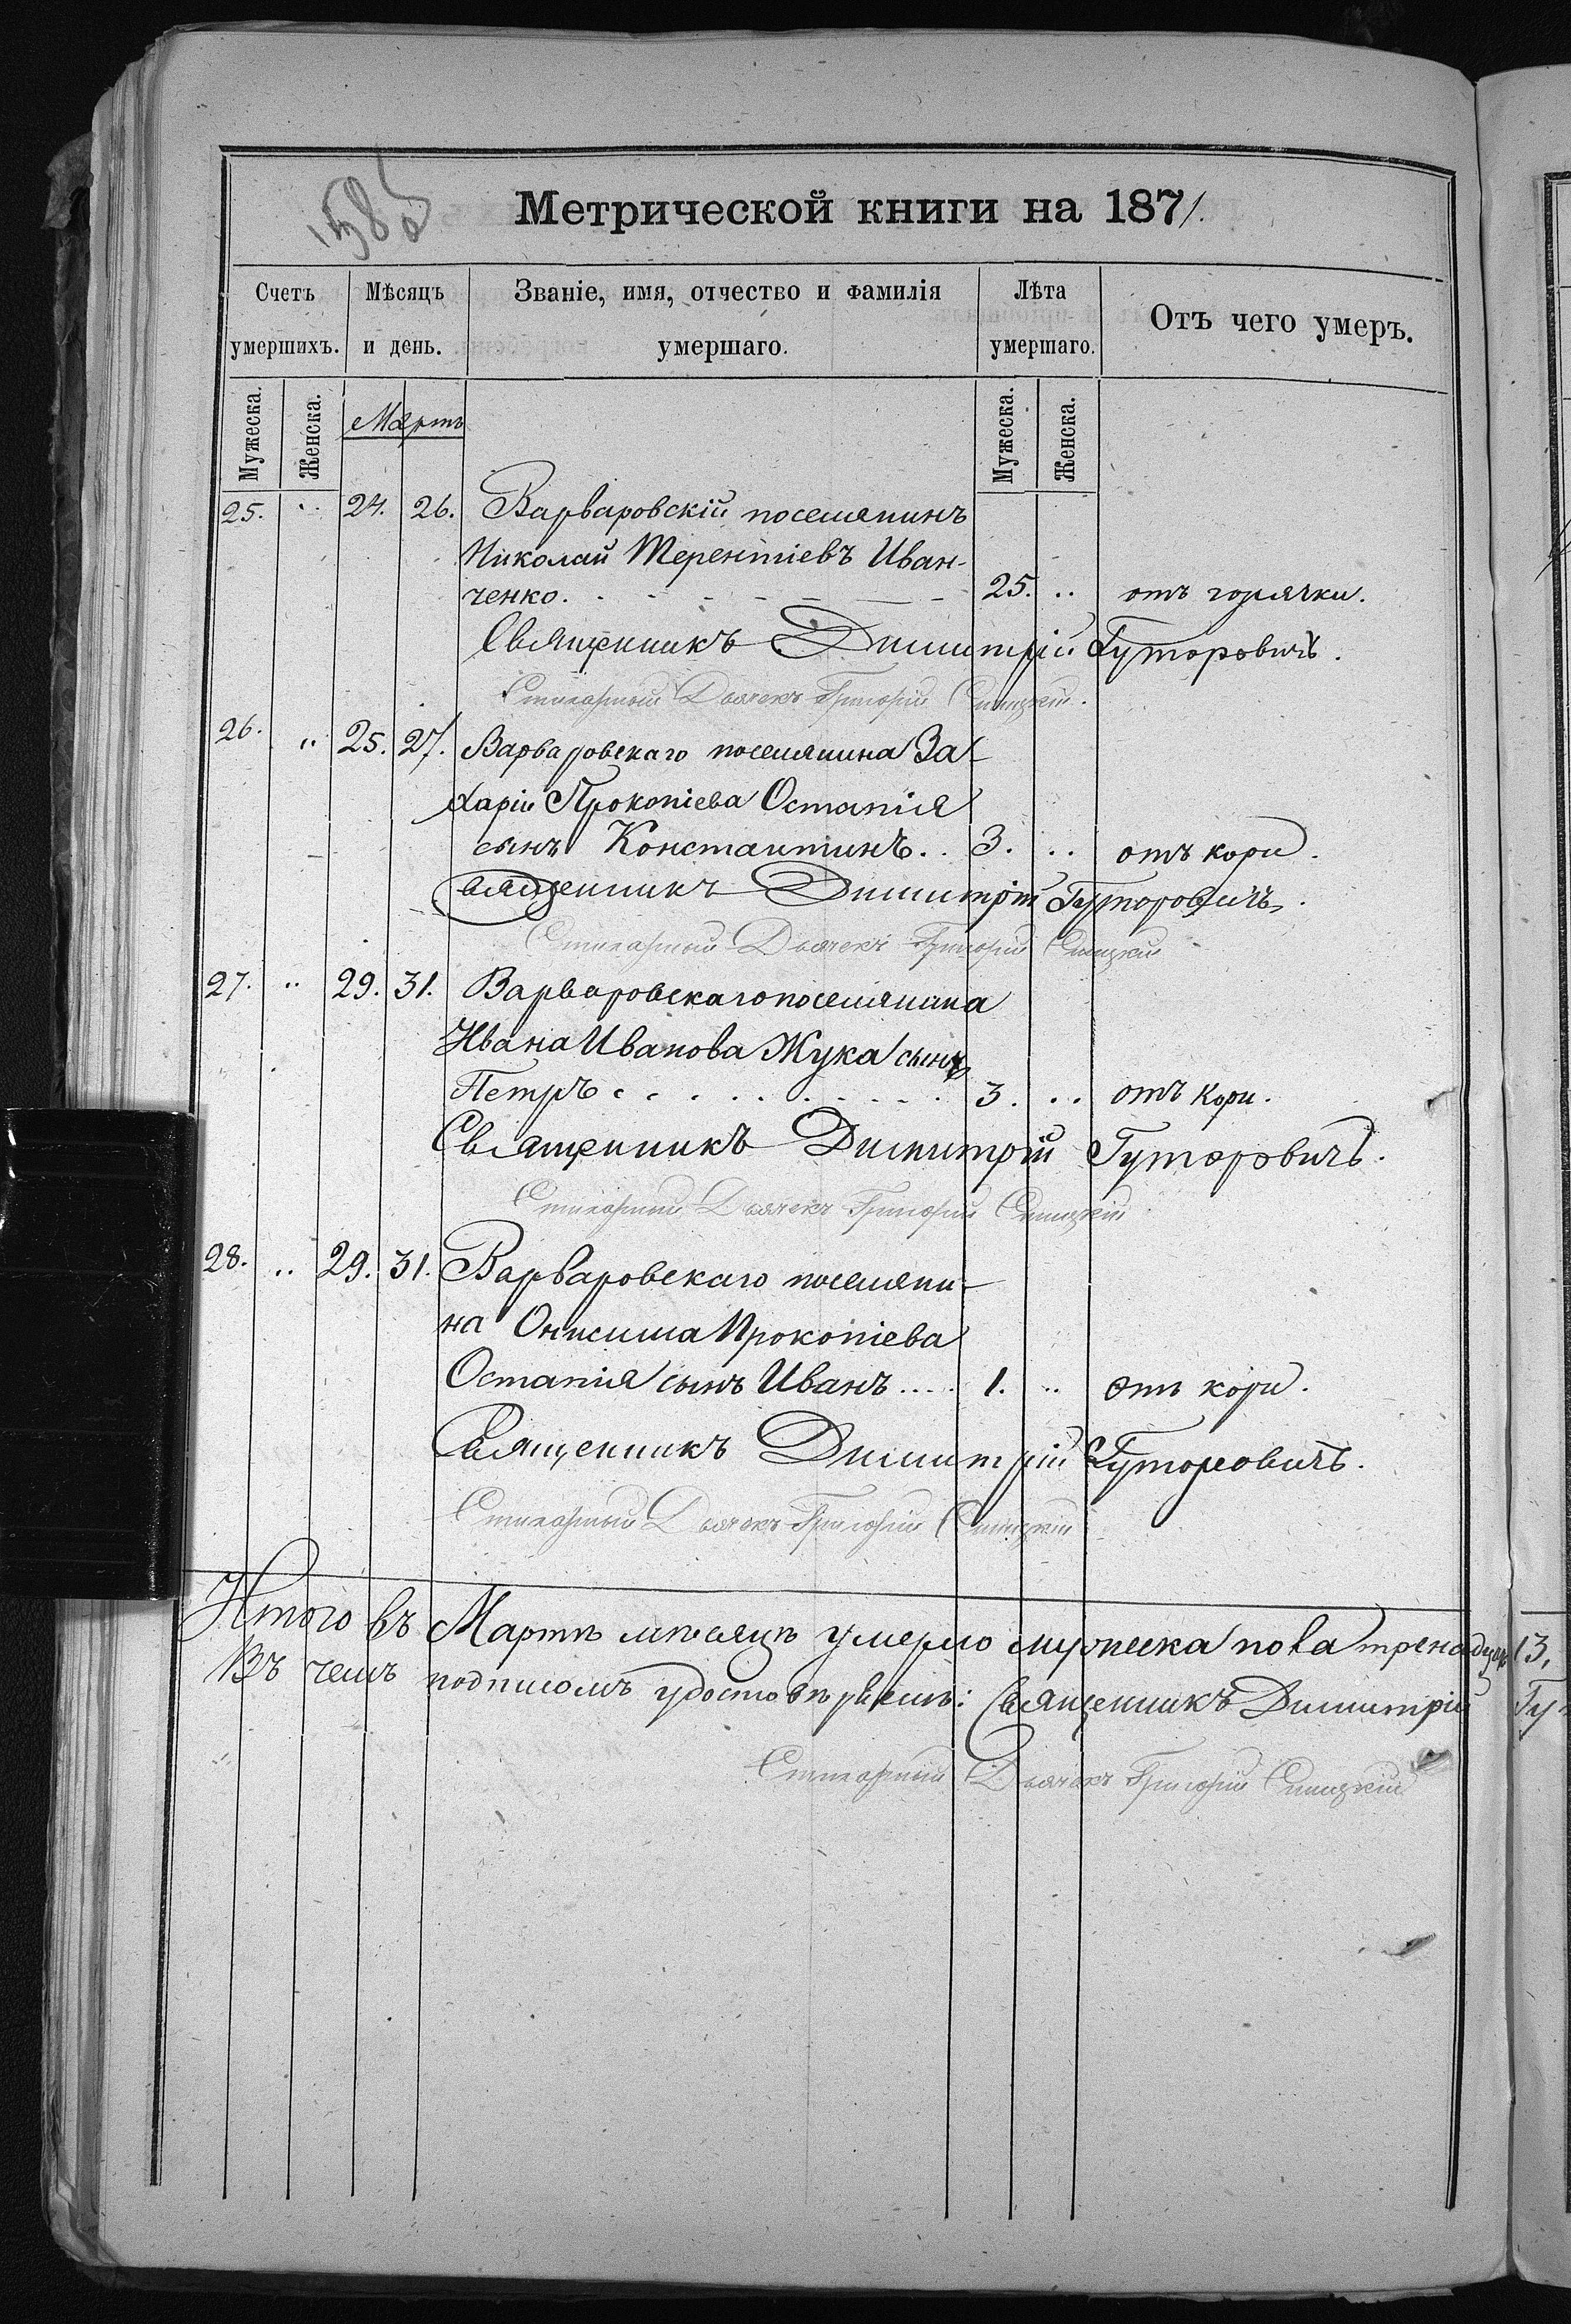 Метрической книги на 1871.
Счетъ умершихъ.
Мѣсяцъ и день.
Званіе, имя, отчество и фамилія умершаго.
Лѣта умершаго.
Отъ чего умеръ.
Мужеска. Женска. Мартъ Мужеска. Женска.
25. .. 24. 26. Варваровскій поселянинъ
Николай Терентіевъ Иван-
ченко. 25. .. отъ горячки.
Священникъ Димитрій Гуторовичъ.
Стихарный Дьячекъ Григорій
26. .. 25. 27. Варваровскаго поселянина За-
харіи Прокопіева Остапія
сынъ Константинъ.. 3. .. отъ кори.
Священникъ Димитрій Гуторовичъ.
Стихарный Дьячекъ Григорій
27. .. 29. 31. Варваровскаго поселянина
Ивана Иванова Жука сынъ
Петръ . . . . . . . . . 3. .. отъ кори.
Священникъ Димитрій Гуторовичъ.
Стихарный Дьячекъ Григорій
28. .. 29. 31. Варваровскаго поселяни-
на Онисима Прокопіева
Остапія сынъ Иванъ.... 1. .. отъ кори.
Священникъ Димитрій Гуторовичъ.
Стихарный Дьячекъ Григорій
Итого въ Мартѣ мѣсяцѣ умерло мужеска пола тренадцать 13,
Въ чемъ подписомъ удостовѣряемъ: Священникъ Димитрій Гу
Стихарный Дьячекъ Григорій